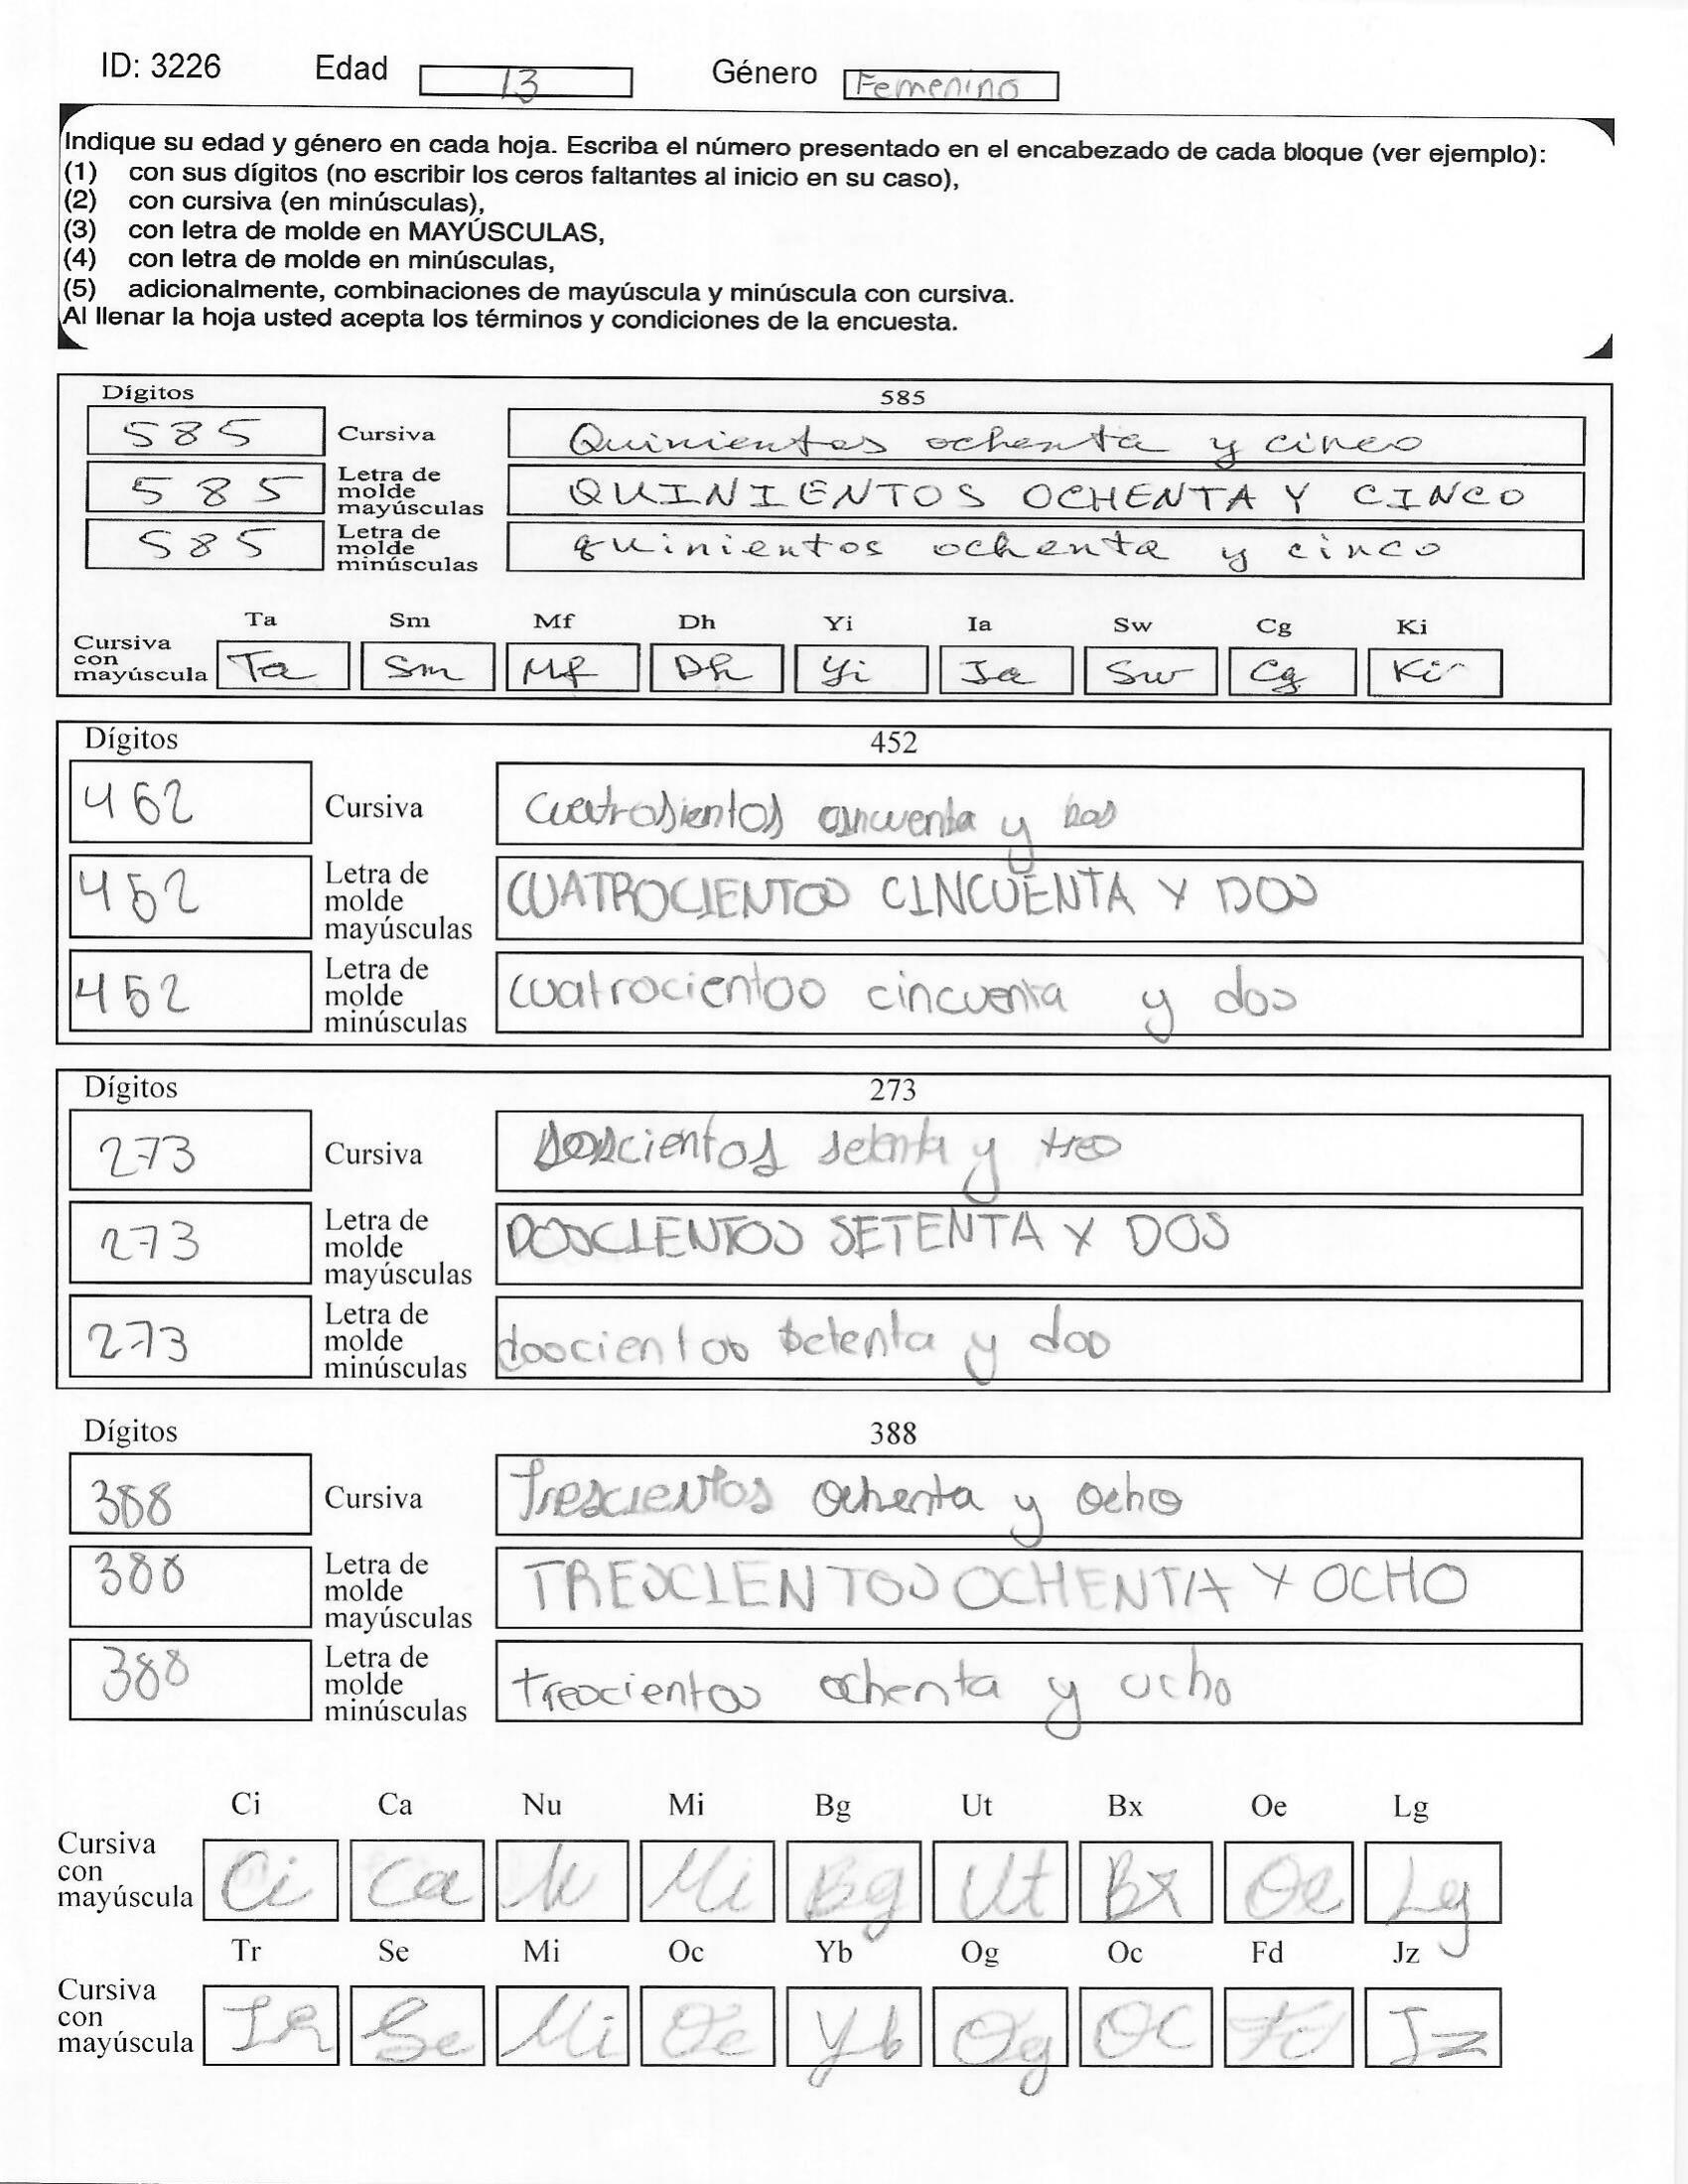 ID: 3226 Edad 13 Género Femenino
Indique su edad y género en cada hoja. Escriba el número presentado en el encabezado de cada bloque (ver ejemplo):
(1) con sus dígitos (no escribir los ceros faltantes al inicio en su caso),
(2) con cursiva (en minúsculas),
(3) con letra de molde en MAYÚSCULAS,
(4) con letra de molde en minúsculas,
(5) adicionalmente, combinaciones de mayúscula y minúscula con cursiva.
Al llenar la hoja usted acepta los términos y condiciones de la encuesta.
Dígitos 585
585 Cursiva Quinientos ochenta y cinco
585 Letra de molde mayúsculas QUINIENTOS OCHENTA Y CINCO
585 Letra de molde minúsculas quinientos ochenta y cinco
Ta Sm Mf Dh Yi Ia Sw Cg Ki
Cursiva con mayúscula Ta Sm Mf Dh Yi Ia Sw Cg Ki
Dígitos 452
452 Cursiva cuatrosientos cincuenta y dos
452 Letra de molde mayúsculas CUATROCIENTOS CINCUENTA Y DOS
452 Letra de molde minúsculas cuatrocientos cincuenta y dos
Dígitos 273
273 Cursiva doscientos setenta y tres
273 Letra de molde mayúsculas DOSCIENTOS SETENTA Y DOS
273 Letra de molde minúsculas doscientos setenta y dos
Dígitos 388
388 Cursiva Trescientos ochenta y ocho
388 Letra de molde mayúsculas TRESCIENTOS OCHENTA Y OCHO
388 Letra de molde minúsculas trescientos ochenta y ocho
Ci Ca Nu Mi Bg Ut Bx Oe Lg
Cursiva con mayúscula Ci Ca Nu Mi Bg Ut Bx Oe Lg
Tr Se Mi Oc Yb Og Oc Fd Jz
Cursiva con mayúscula Tr Se Mi Oc Yb Og Oc Fd Jz